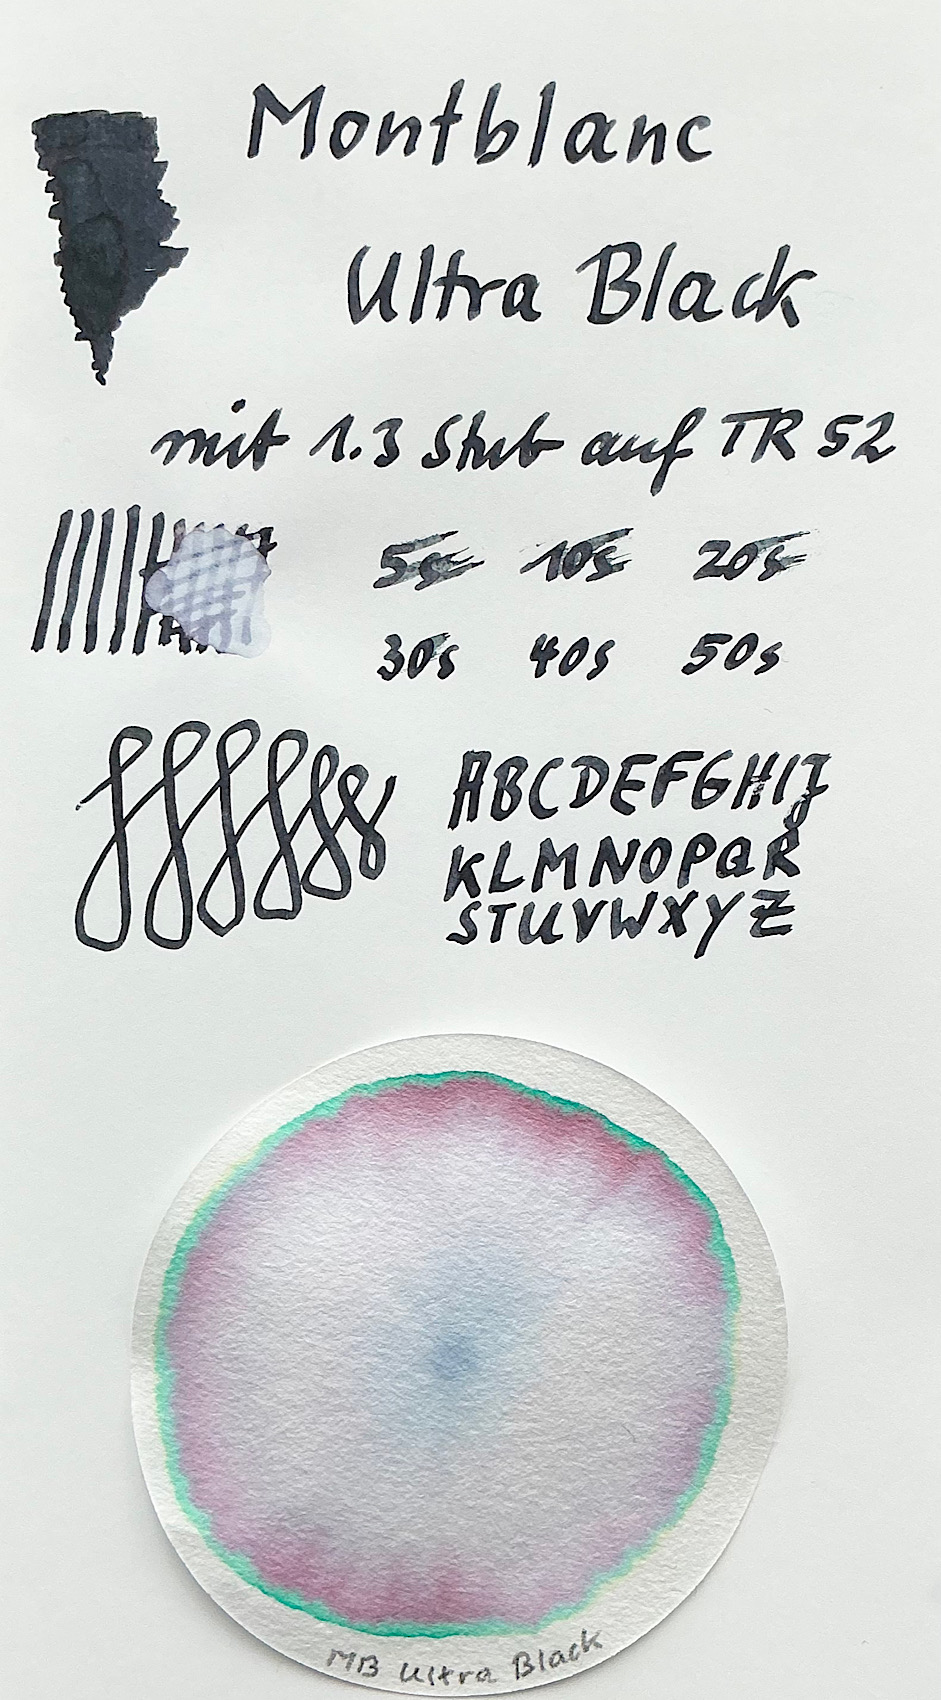 Montblanc
Ultra Black
mit 1.3 Stub auf TR 52
5s 10s 20s
30s 40s 50s
ABCDEFGHIJ
KLMNOPQR
STUVWXYZ
MB Ultra Black